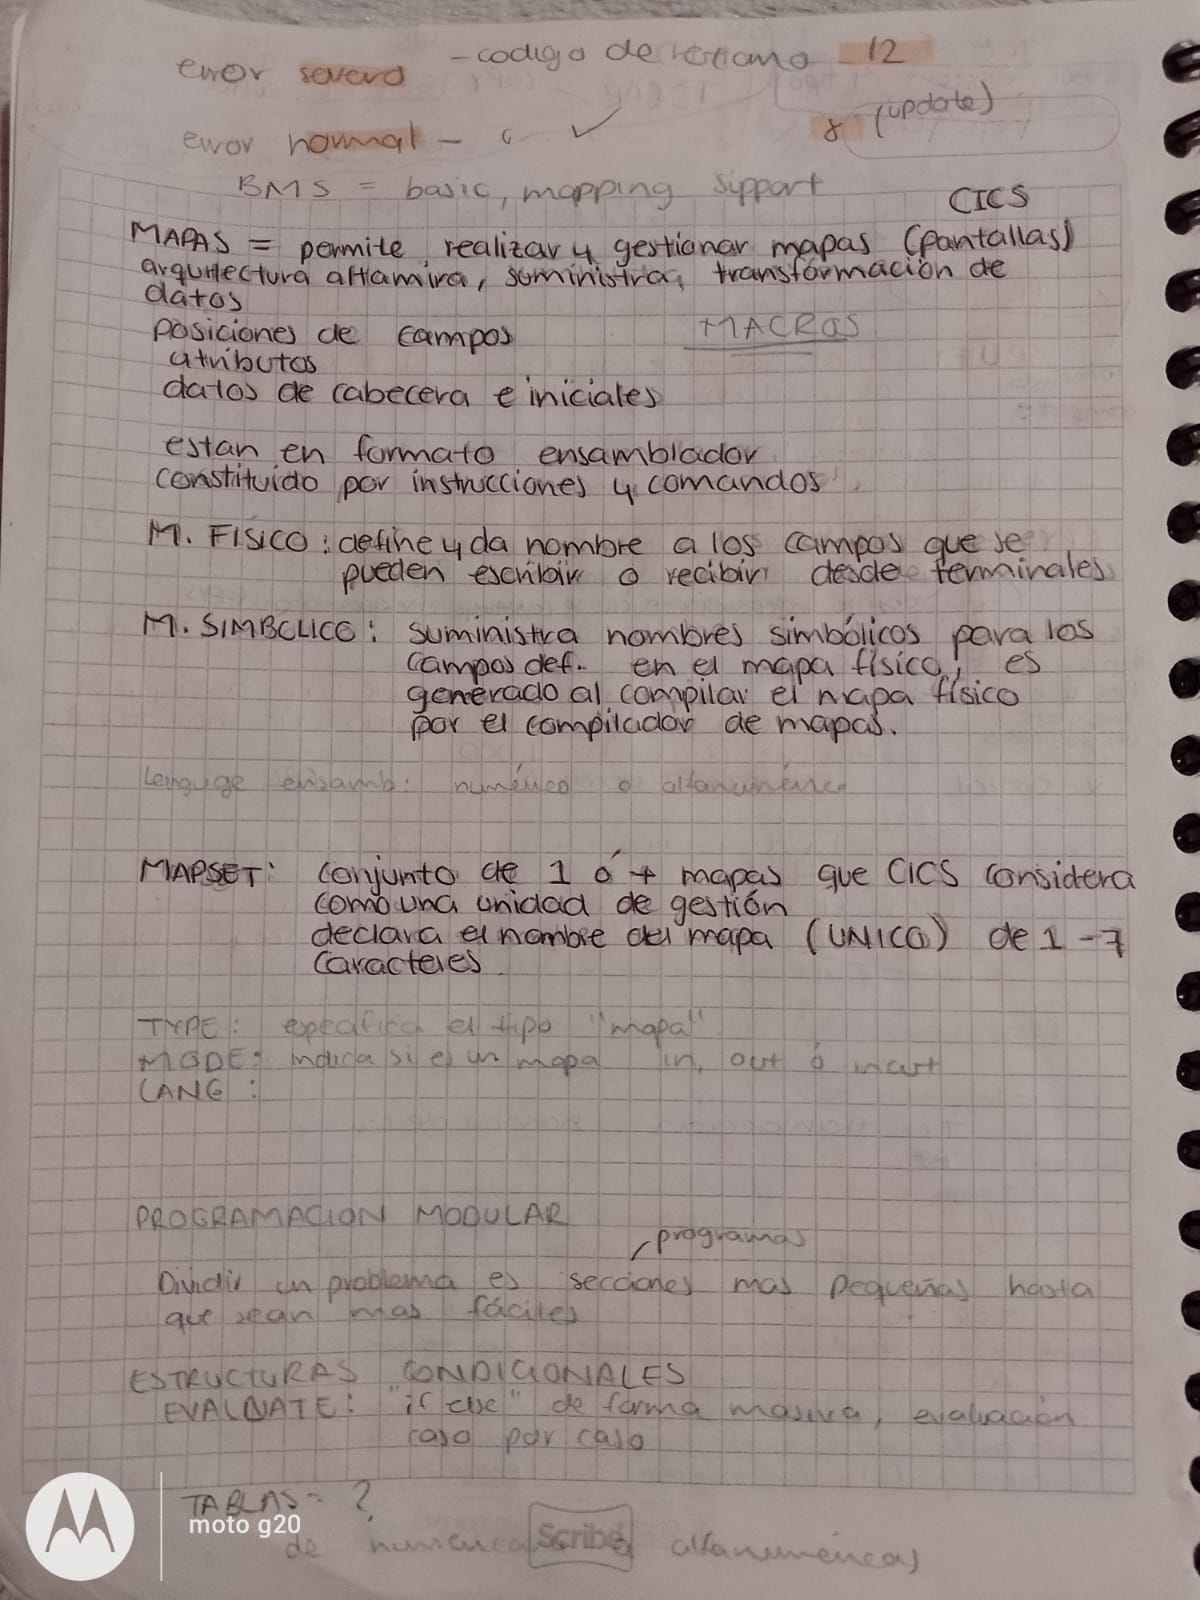 error severo - codigo de retorno 12
error normal - " ✓ 8 (update)
BMS = basic, mapping support
CICS
MAPAS = permite realizar y gestionar mapas (pantallas)
arquitectura altamira, suministra, transformación de
datos
posiciones de campos MACROS
atributos
datos de cabecera e iniciales
estan en formato ensamblador
constituido por instrucciones y comandos
M. FISICO: define y da nombre a los campos que se
pueden escribir o recibir desde terminales
M. SIMBOLICO: suministra nombres simbólicos para los
campos def. en el mapa físico, es
generado al compilar el mapa físico
por el compilador de mapas.
Lenguge ensamb: numérico o alfanumérico
MAPSET: conjunto de 1 ó + mapas que CICS considera
como una unidad de gestión
declara el nombre del mapa (UNICO) de 1 - 7
caracteres
TYPE: especifica el tipo "mapa"
MODE: indica si es un mapa in, out ó inout
LANG:
PROGRAMACION MODULAR
programas
Dividir un problema es secciones mas pequeñas hasta
que sean mas fáciles
ESTRUCTURAS CONDICIONALES
EVALUATE: "if else" de forma masiva, evaluación
caso por caso
TABLAS = ?
moto g20
de numericas Scribe a alfanuméricas